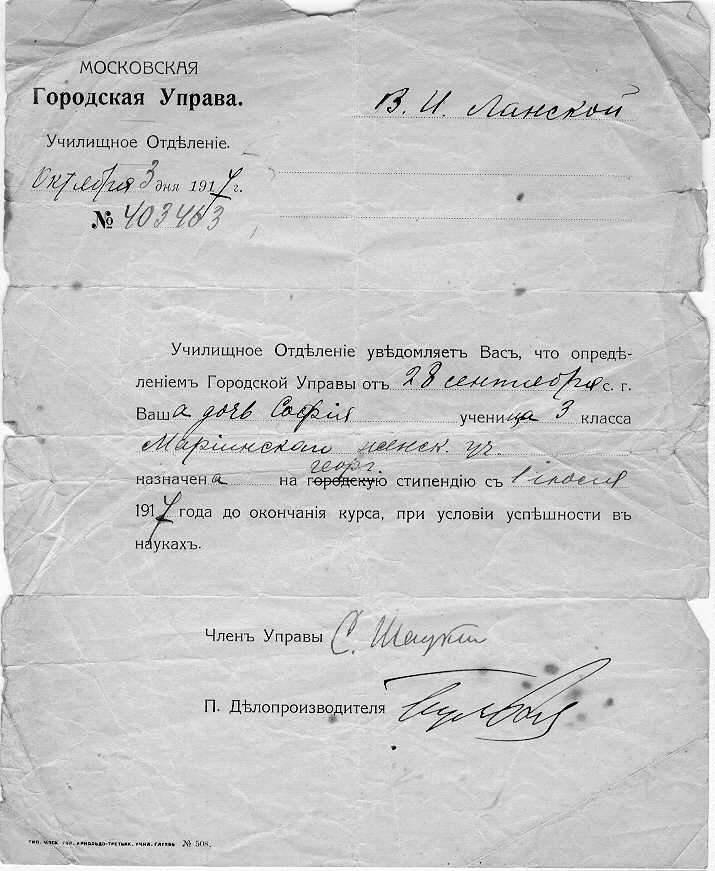 МОСКОВСКАЯ
Городская Управа.
В. И. Ланской
Училищное Отдѣленіе.
Октября 3 дня 1917 г.
№ 403463
Училищное Отдѣленіе увѣдомляетъ Васъ, что опредѣ-
леніемъ Городской Управы отъ 28 сентября с. г.
Ваша дочь Софія ученица 3 класса
Маріинскаго женск. уч.
георг.
назначена на городскую стипендію съ 1 іюля
1917 года до окончанія курса, при условіи успѣшности въ
наукахъ.
Членъ Управы С. Шацкій
П. Дѣлопроизводителя
ТИП. МОСК. ГОР. АРНОЛЬДО-ТРЕТЬЯК. УЧИЛ. ГЛУХОН. № 508.